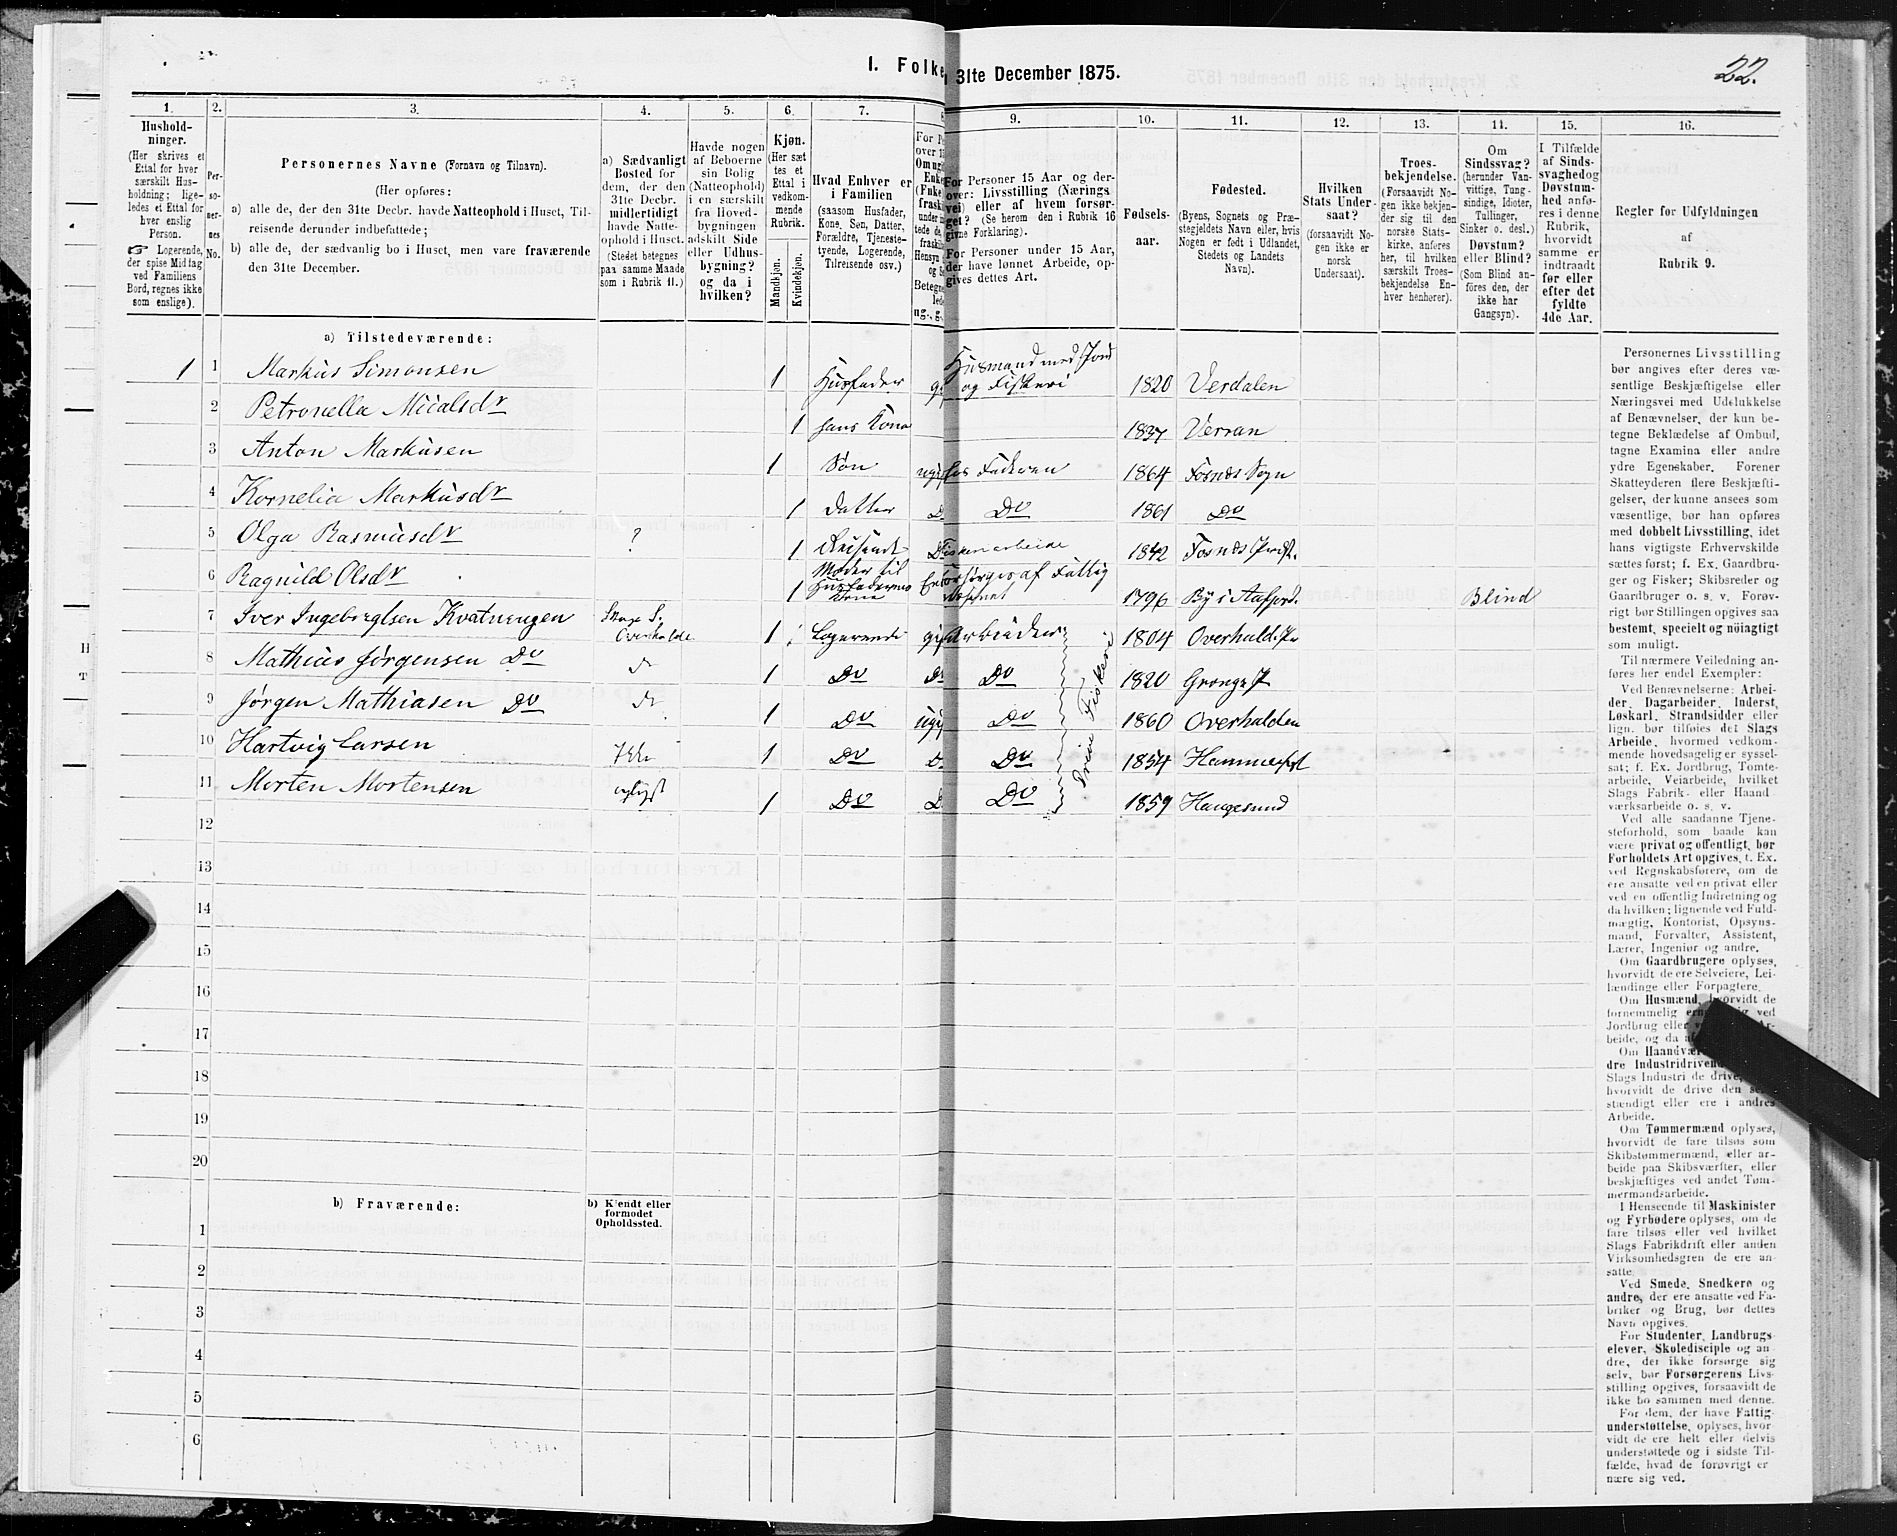 22.
I. Folke
31te December 1875.
1. 2. 3. 4. 5. 6. 7. 8. 9. 10. 11. 12. 13. 14. 15. 16.
Hushold-
ninger.
(Her skrives et
Ettal for hver
særskilt Hus-
holdning; lige-
ledes et Ettal for
hver enslig
Person.
☞ Logerende,
der spise Middag
ved Familiens
Bord, regnes ikke
som enslige).
Per-
so-
ner-
nes
No.
Personernes Navne (Fornavn og Tilnavn).
(Her opføres:
a) alle de, der den 31te Decbr. havde Natteophold i Huset, Til-
reisende derunder indbefattede;
b) alle de, der sædvanlig bo i Huset, men vare fraværende
den 31te December.
a) Sædvanligt
Bosted for
dem, der den
31te Decbr.
midlertidigt
havde Natte-
ophold i Huset.
(Stedet betegnes
paa samme Maade
som i Rubrik 11.)
Havde nogen
af Beboerne
sin Bolig
(Natteophold)
i en særskilt
fra Hoved-
bygningen
adskilt Side
eller Udhus-
bygning?
og da i
hvilken?
Kjøn.
(Her sæt
tes et
Ettal i
vedkom-
mende
Rubrik.
Mandkjøn.
Kvindekjøn.
Hvad Enhver er
i Familien
(saasom Husfader,
Kone, Søn, Datter,
Forældre, Tjeneste-
tyende, Logerende,
Tilreisende osv.)
For Personer 15 Aar og der-
over: Livsstilling (Nærings
vei) eller af hvem forsør-
get? (Se herom den i Rubrik 16
givne Forklaring).
For Personer under 15 Aar,
der have lønnet Arbeide, op-
gives dettes Art.
Fødsels-
aar.
Fødested.
(Byens, Sognets og Præ-
stegjeldets Navn eller, hvis
Nogen er født i Udlandet,
Stedets og Landets
Navn).
Hvilken
Stats Under-
saat?
(forsaavidt No-
gen ikke er
norsk
Undersaat).
Troes-
bekjendelse.
(Forsaavidt No-
gen ikke bekjen-
der sig til den
norske Stats-
kirke, anføres
her, til hvilken
særskilt Troes-
bekjendelse En-
hver henhører).
Om
Sindssvag?
(herunder Van-
vittige, Tung-
sindige, Idioter,
Tullinger,
Sinker o. desl.)
Døvstum?
eller Blind?
(Som Blind an-
føres den, der
ikke har
Gangsyn).
I Tilfælde
af Sinds-
svaghed og
Døvstum-
hed anfø-
res i denne
Rubrik,
hvorvidt
samme er
indtraadt
før eller
efter det
fyldte
4de Aar.
Regler for Udfyldningen
af
Rubrik 9.
a) Tilstedeværende:
1 1 Markus Simonsen 1 Husfader g. Husmand med Jord og Fiskeri 1820 Verdalen
2 Petronella Micalsdr 1 hans Kone 1837 Verran
3 Anton Markusen 1 Søn ugift hos Faderen 1864 Fosnes Sogn
4 Kornelia Markusdr 1 datter D. Do 1861 Do
5 Olga Rasmusdr ? 1 Fiskenarbeide 1842 Fosnes Prst.
6 Ragnild Olsdr 1 Moder til Husfaderens Kone Forsørges af Fattig 1796 By i Aafjord. Blind
7 Iver Ingebriglsen Kvatningen Overhalde 1 Logerende gift Arbeider 1804 Overhald. Pr
8 Mathias Jørgensen Do do 1 Do Do Do 1820 Grong P
9 Jørgen Mathiasen Do do 1 Do ugift Do 1860 Overhalden
10 Hartvig Larsen 1 Do D. Do 1854 Hammerfest
11 Morten Mortensen 1 Do D. Do 1859 Haugesund
Drive Fiskeri
12
13
14
15
16
17
18
19
20
b) Fraværende:
b) Kjendt eller
formodet
Opholdssted.
1
2
3
4
5
6
H
T
Personernes Livsstilling
bør angives efter deres væ-
sentlige Beskjæftigelse eller
Næringsvei med Udelukkelse
af Benævnelser, der kun be-
tegne Beklædelse af Ombud,
tagne Examina eller andre
ydre Egenskaber. Forener
Skatteyderen flere Beskjæfti-
gelser, der kunne ansees som
væsentlige, bør han opføres
med dobbelt Livsstilling, idet
hans vigtigste Erhvervskilde
sættes først; f. Ex. Gaardbru-
ger og Fisker; Skibsreder og
Gaardbruger o. s. v. Forøv-
rigt bør Stillingen opgives saa
bestemt, specielt og nøiagtigt
som muligt.
Til nærmere Veiledning an-
føres her endel Exempler:
Ved Benævnelserne: Arbei-
der, Dagarbeider, Inderst,
Løskarl, Strandsidder eller
lign. bør tilføies det Slags
Arbeide, hvormed vedkom-
mende hovedsagelig er syssel-
sat; f. Ex. Jordbrug, Tomte-
arbeide, Veiarbeide, hvilket
Slags Fabrik- eller Haand
værksarbeide o. s. v.
Ved alle saadanne Tjene-
steforhold, som baade kan
være privat og offentligt, bør
Forholdets Art opgives, t. Ex.
ved Regnskabsførere, om de
ere ansatte ved en privat eller
ved en offentlig Indretning og
da hvilken; lignende ved Fuld-
mægtig, Kontorist, Opsyns-
mand, Forvalter, Assistent,
Lærer, Ingeniør og andre.
Om Gaardbrugere oplyses,
hvorvidt de ere Selveiere, Lei-
lændinge eller Forpagtere.
Om Husmænd, hvorvidt de
fornemmelig
Jordbrug eller
beide, og da
Om
dre
Slags Industri de drive,
hvorvidt de drive den
stændigt eller ere i andres
Arbeide.
Om Tømmermænd oplyses,
hvorvidt de fare tilsøs som
Skibstømmermænd, eller ar-
beide paa Skibsværfter, eller
beskjæftiges ved andet Tøm-
mermandsarbeide.
I Henseende til Maskinister
og Fyrbødere oplyses, om de
fare tilsøs eller ved hvilket
Slags Fabrikdrift eller anden
Virksomhedsgren de ere an-
satte.
Ved Smede, Snedkere og
andre, der ere ansatte ved Fa-
briker og Brug, bør dettes
Navn opgives.
For Studenter, Landbrugs-
elever, Skoledisciple og an-
dre, der ikke forsørge sig
selv, bør Forsørgerens Livs-
stilling opgives, forsaavidt de
ikke bo sammen med denne.
For dem, der have Fattig-
understøttelse, oplyses, hvor
vidt de ere helt eller delvis
understøttede og i sidste Til-
fælde, hvad de forøvrigt er
nære sig ved.